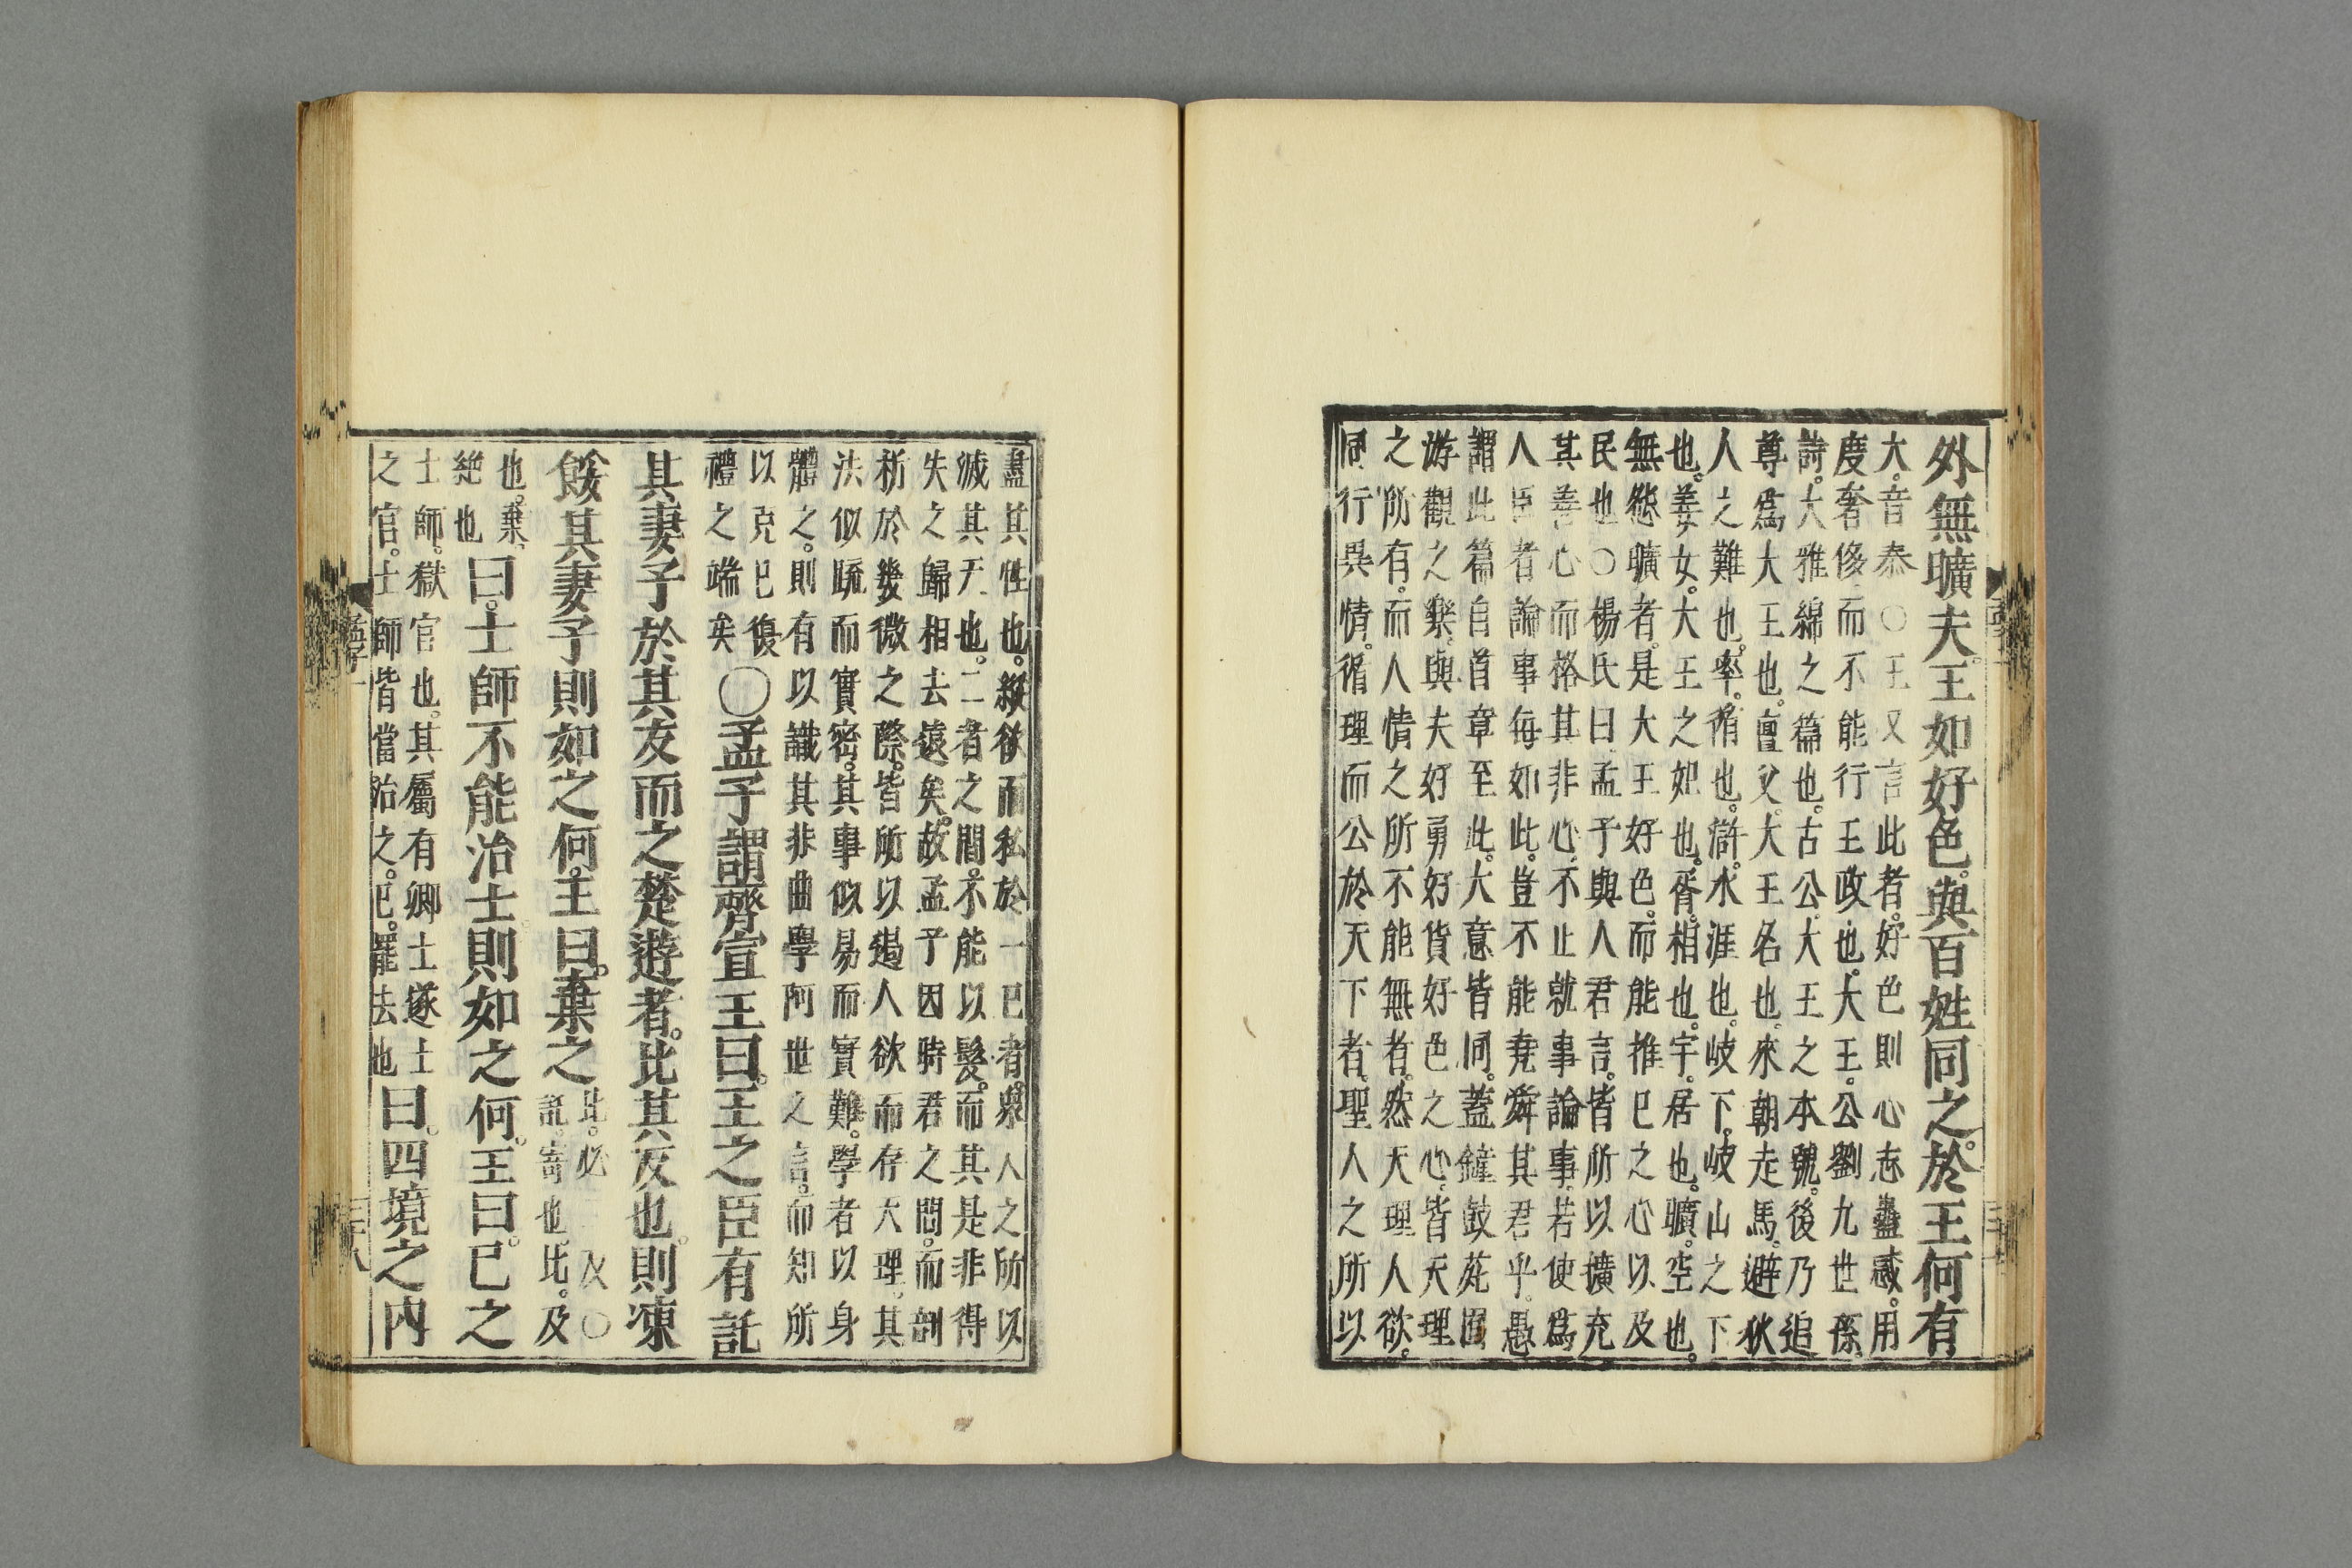 外無曠夫。王如好色。與百姓同之。於王何有
大。音泰〇王又言此者。好色則心志蠱惑。用
度奢侈。而不能行王政也。大王。公劉九世孫。
詩。大雅緜之篇也。古公。大王之本號。後乃追
尊爲大王也。亶父。大王名也。來朝走馬。避狄
人之難也。率。循也。滸。水涯也。岐下。岐山之下
也。姜女。大王之妃也。胥。相也。宇。居也。曠。空也。
無怨曠者。是大王好色。而能推已之心以及
民也〇楊氏曰孟子與人君言。皆所以擴充
其善心而格其非心。不止就事論事。若使爲
人臣者論事每如此。豈不能堯舜其君乎。愚
謂此篇自首章至此。大意皆同。蓋鐘鼓苑囿
游觀之樂。與夫好勇好貨好色之心。皆天理
之所有。而人情之所不能無者。然天理人欲。
同行異情。循理而公於天下者。聖人之所以
盡其性也。縱欲而私於一已者。衆人之所以
滅其天也。二者之間。不能以髮。而其是非得
失之歸相去遠矣。故孟子因時君之問。而剖
析於幾微之際。皆所以遏人欲而存天理。其
法似疏而實密。其事似易而實難。學者以身
體之。則有以識其非曲學阿世之言。而知所
以克已復
禮之端矣
〇孟子謂齊宣王曰。王之臣有託
其妻子於其友而之楚遊者。比其反也。則凍
餒其妻子則如之何。王曰。棄之
比。必二反〇
託。寄也。比。及
也。棄。
絶也
曰。士師不能治士則如之何。王曰。已之
士師。獄官也。其屬有鄉士遂士
之官。士師皆當治之。已。罷去也
曰。四境之內
孟子一
三十八